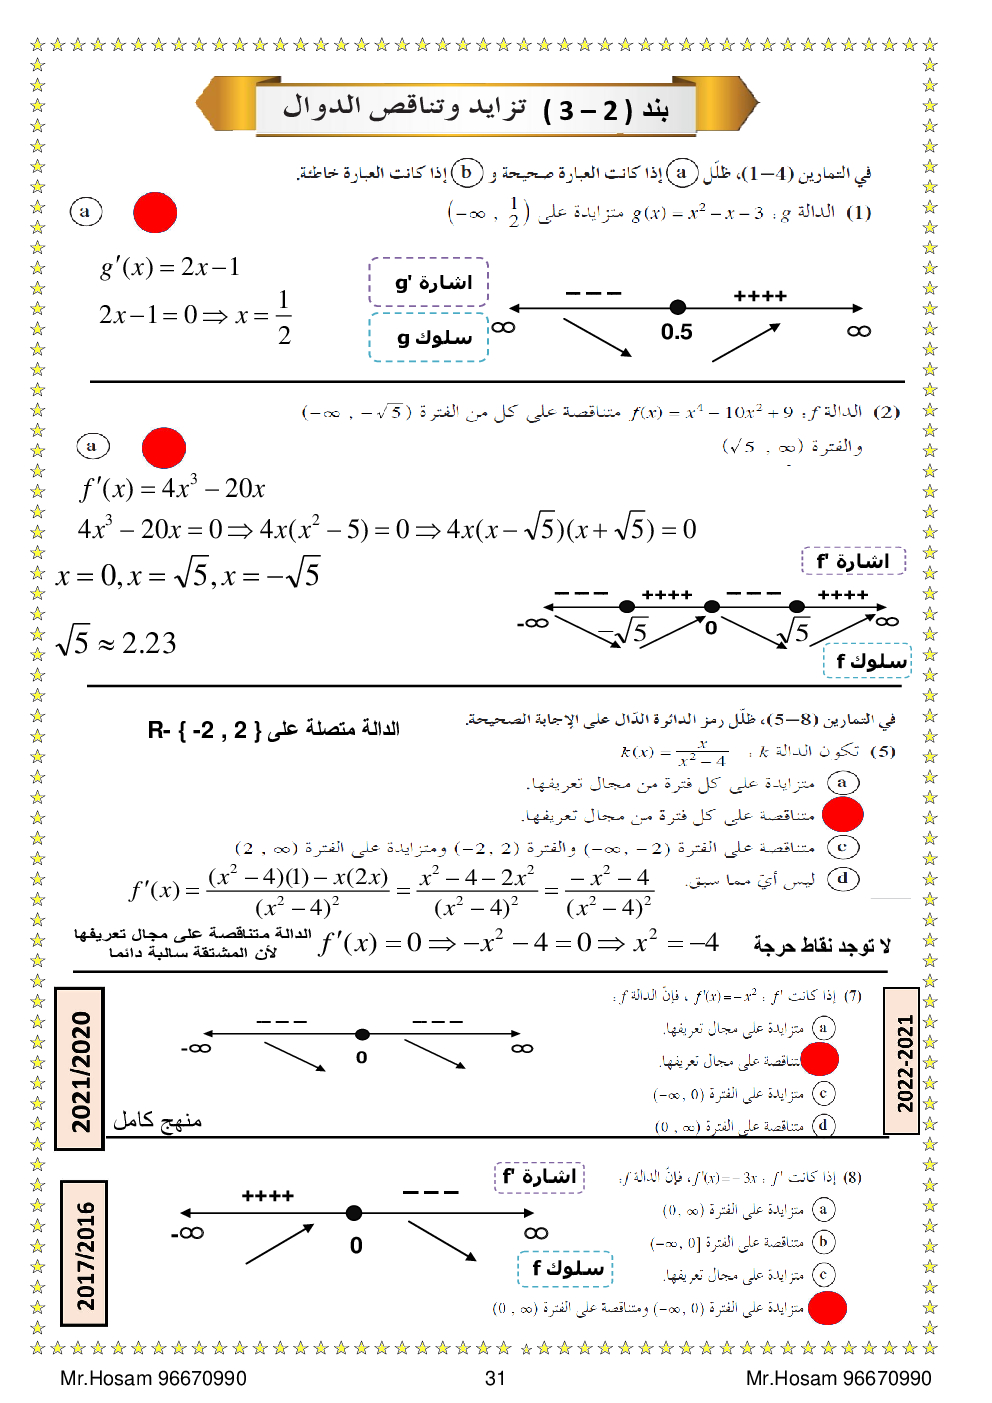 بند ( 2 – 3 ) تزايد وتناقص الدوال
في التمارين (4–1)، ظلّل (a) إذا كانت العبارة صحيحة و (b) إذا كانت العبارة خاطئة.
(1) الدالة g : g(x) = x² − x − 3 متزايدة على (−∞ , 1/2)
a
g′(x) = 2x−1
2x−1 = 0 ⇒ x = 1/2
اشارة g'
سلوك g
− − − ++++
∞ 0.5 ∞
(2) الدالة f : f(x) = x⁴ − 10x² + 9 متناقصة على كل من الفترة (−∞ , −√5)
والفترة (√5 , ∞)
a
f′(x) = 4x³ − 20x
4x³ − 20x = 0 ⇒ 4x(x² − 5) = 0 ⇒ 4x(x − √5)(x + √5) = 0
x = 0, x = √5, x = −√5
√5 ≈ 2.23
اشارة f'
− − − ++++ − − − ++++
-∞ −√5 0 √5 ∞
سلوك f
في التمارين (8–5)، ظلّل رمز الدائرة الدّال على الإجابة الصحيحة.
الدالة متصلة على R- { -2 , 2 }
(5) تكون الدالة k : k(x) = x/(x² − 4)
a متزايدة على كل فترة من مجال تعريفها.
متناقصة على كل فترة من مجال تعريفها.
c متناقصة على الفترة (−∞, −2) والفترة (−2, 2) ومتزايدة على الفترة (2 , ∞)
d ليس أيّ مما سبق.
f′(x) = ((x² − 4)(1) − x(2x))/(x² − 4)² = (x² − 4 − 2x²)/(x² − 4)² = (− x² − 4)/(x² − 4)²
لا توجد نقاط حرجة f′(x) = 0 ⇒ −x² − 4 = 0 ⇒ x² = −4
الدالة متناقصة على مجال تعريفها
لأن المشتقة سالبة دائما
2021/2020
2022-2021
(7) إذا كانت f′ : f′(x) = − x² ، فإنّ الدالة f:
a متزايدة على مجال تعريفها.
متناقصة على مجال تعريفها.
c متزايدة على الفترة (−∞, 0)
d متناقصة على الفترة (0 , ∞)
− − − − − −
-∞ 0 ∞
منهج كامل
2017/2016
(8) إذا كانت f′ : f′(x) = − 3x، فإنّ الدالة f:
a متزايدة على الفترة (0, ∞)
b متناقصة على الفترة (−∞, 0]
c متزايدة على مجال تعريفها.
متزايدة على الفترة (−∞, 0) ومتناقصة على الفترة (0 , ∞)
اشارة f'
++++ − − −
-∞ 0 ∞
سلوك f
Mr.Hosam 96670990 31 Mr.Hosam 96670990